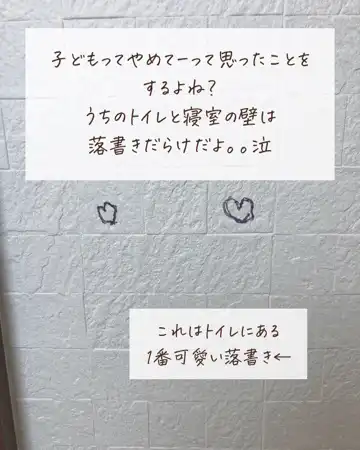 子どもってやめてーって思ったことを
するよね？
うちのトイレと寝室の壁は
落書きだらけだよ。。泣
これはトイレにある
1番可愛い落書き←